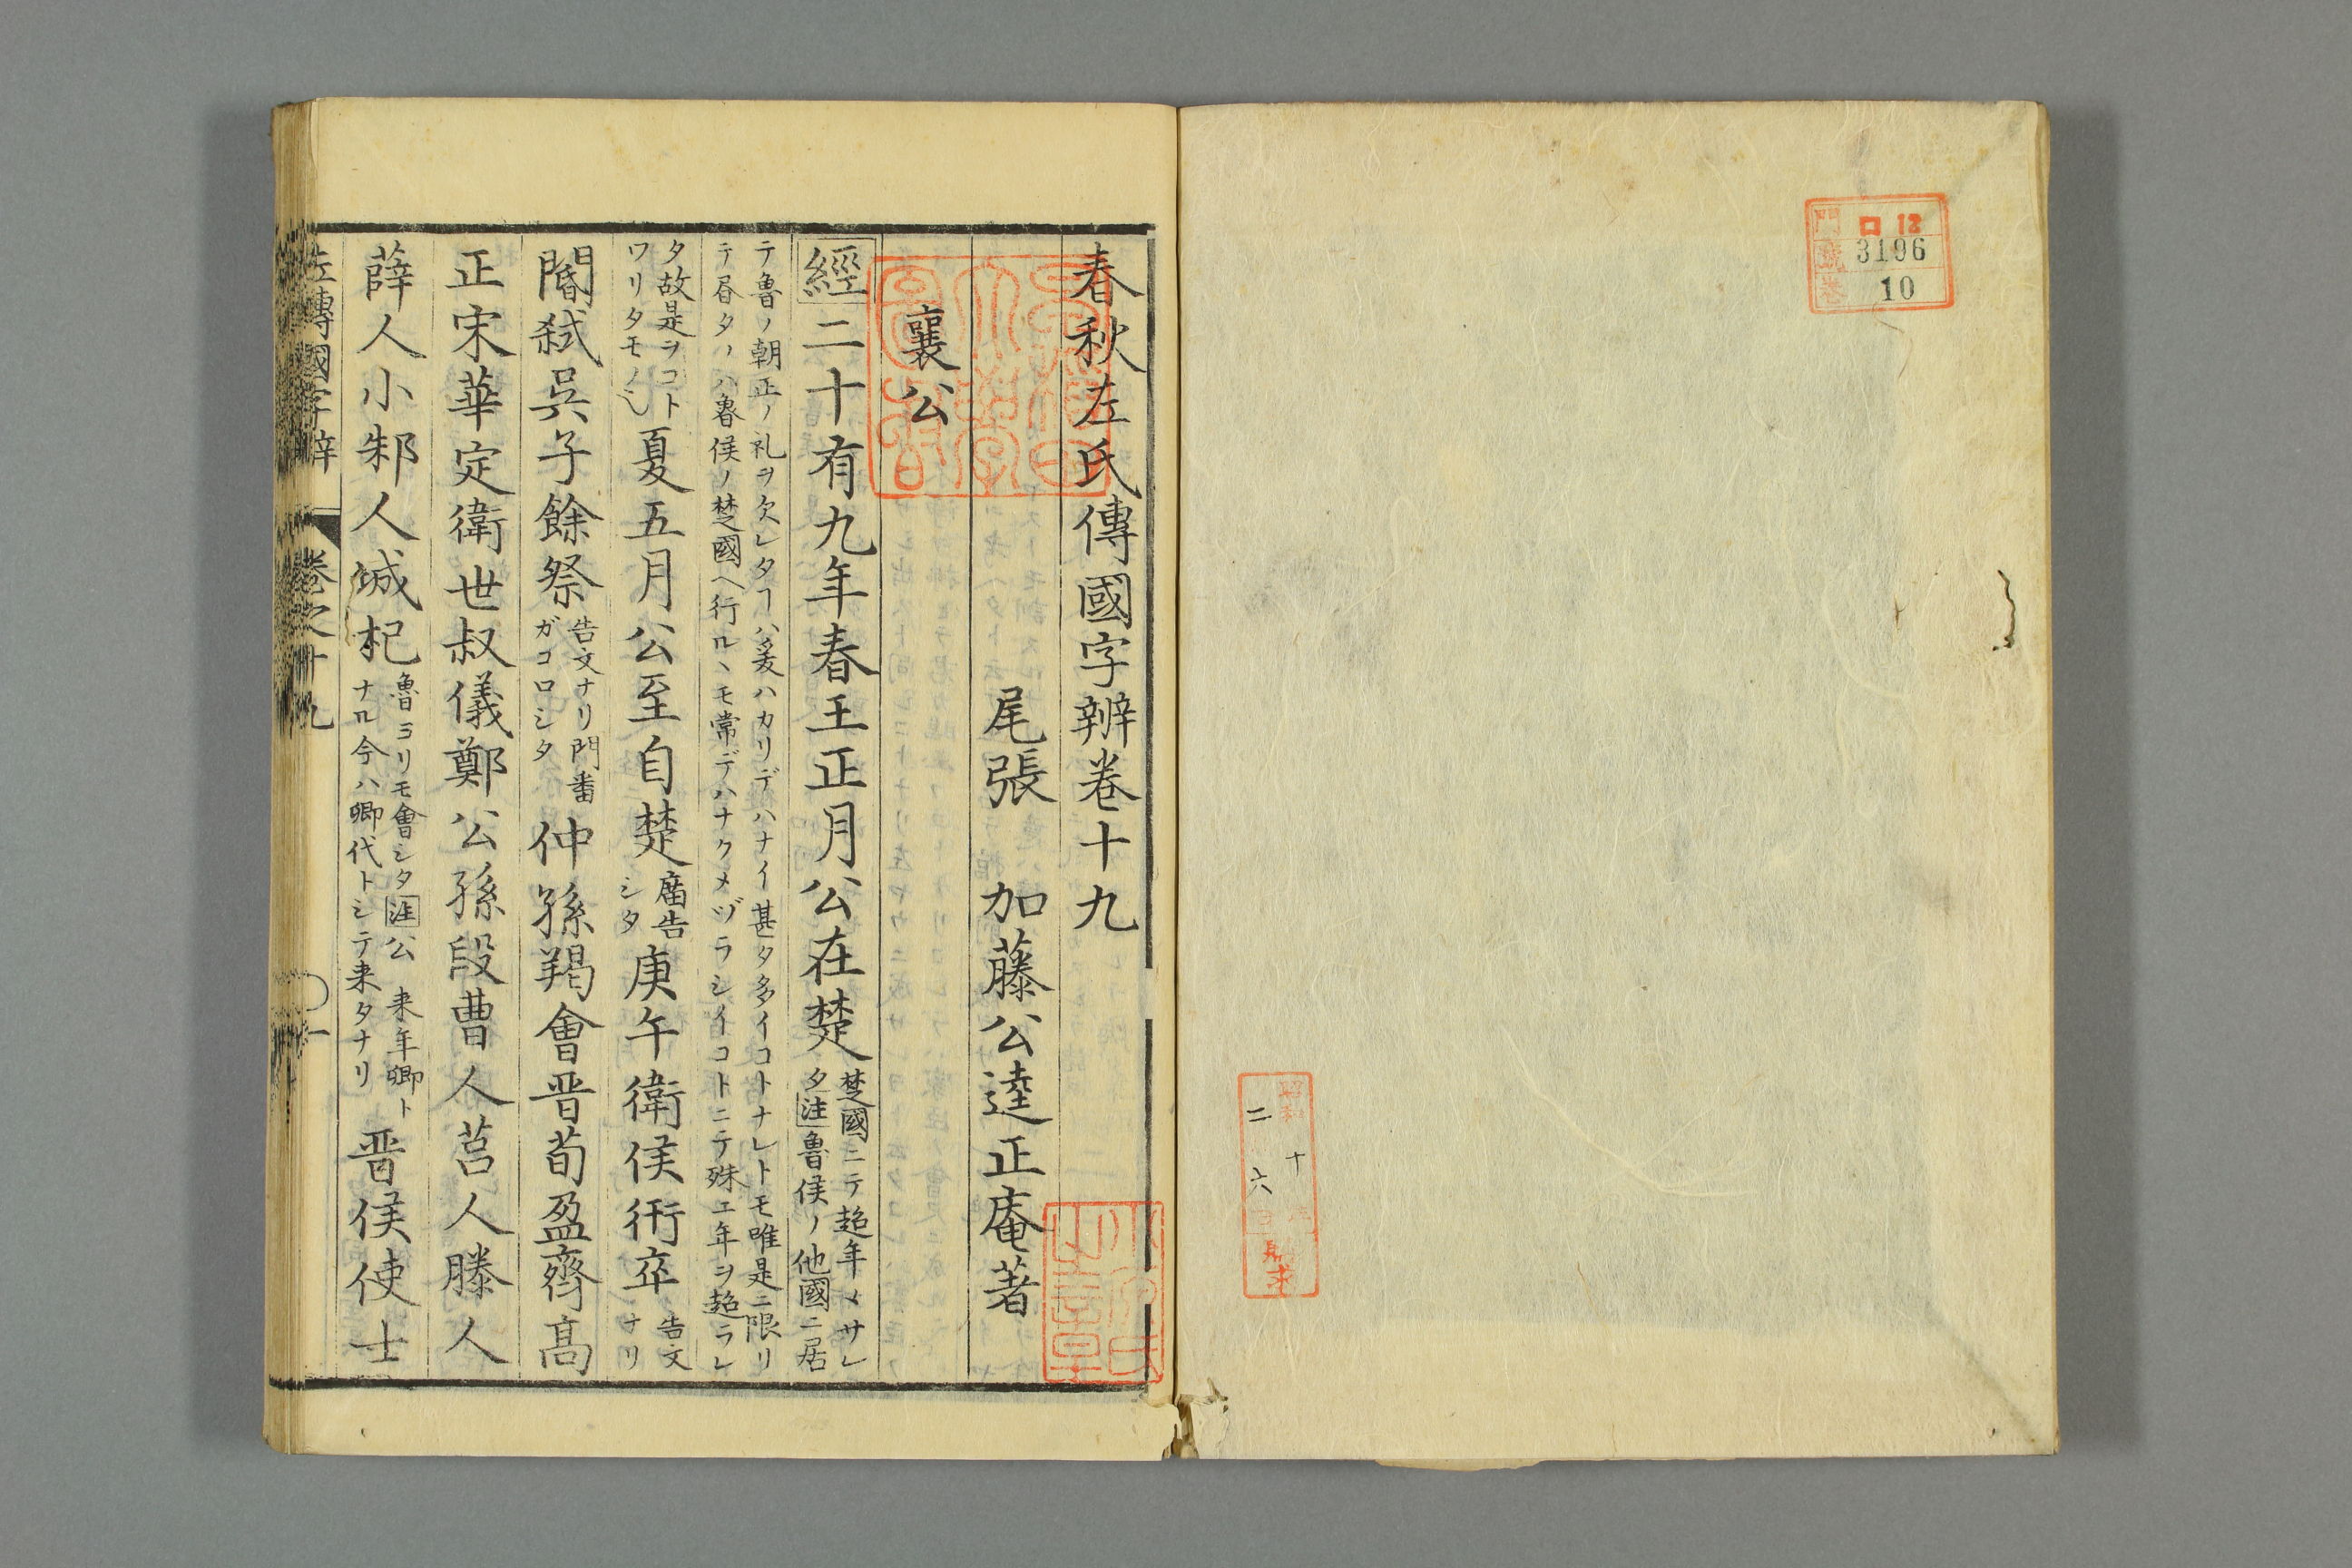 門 ロ 12
號 3196
卷 10
昭和十年
二六日
購求
春秋左氏傳國字辨卷十九
尾張 加藤公逵正庵著
襄公
經二十有九年春王正月公在楚
楚國ニテ超年メサレ
タ注魯侯ノ他國ニ居
テ魯ノ朝正ノ礼ヲ欠レタヿハ爰ハカリデハナイ甚タ多イコトナレトモ唯是ニ限リ
テ居タノハ魯侯ノ楚國ヘ行ルヽモ常デハナクメヅラシイコトニテ殊エ年ヲ超ラレ
タ故是ヲコト
ワリタモノ
夏五月公至自楚
廟告
シタ
庚午衛侯衎卒
告文
ナリ
閽弑吳子餘祭
告文ナリ門番
ガコロシタ
仲孫羯會晋荀盈齊高
正宋華定衛世叔儀鄭公孫段曹人莒人滕人
薛人小邾人城杞
魯ヨリモ會シタ注公 来年卿ト
ナル今ハ卿代トシテ来タナリ
晋侯使士
左傳國字辨 卷之十九 一